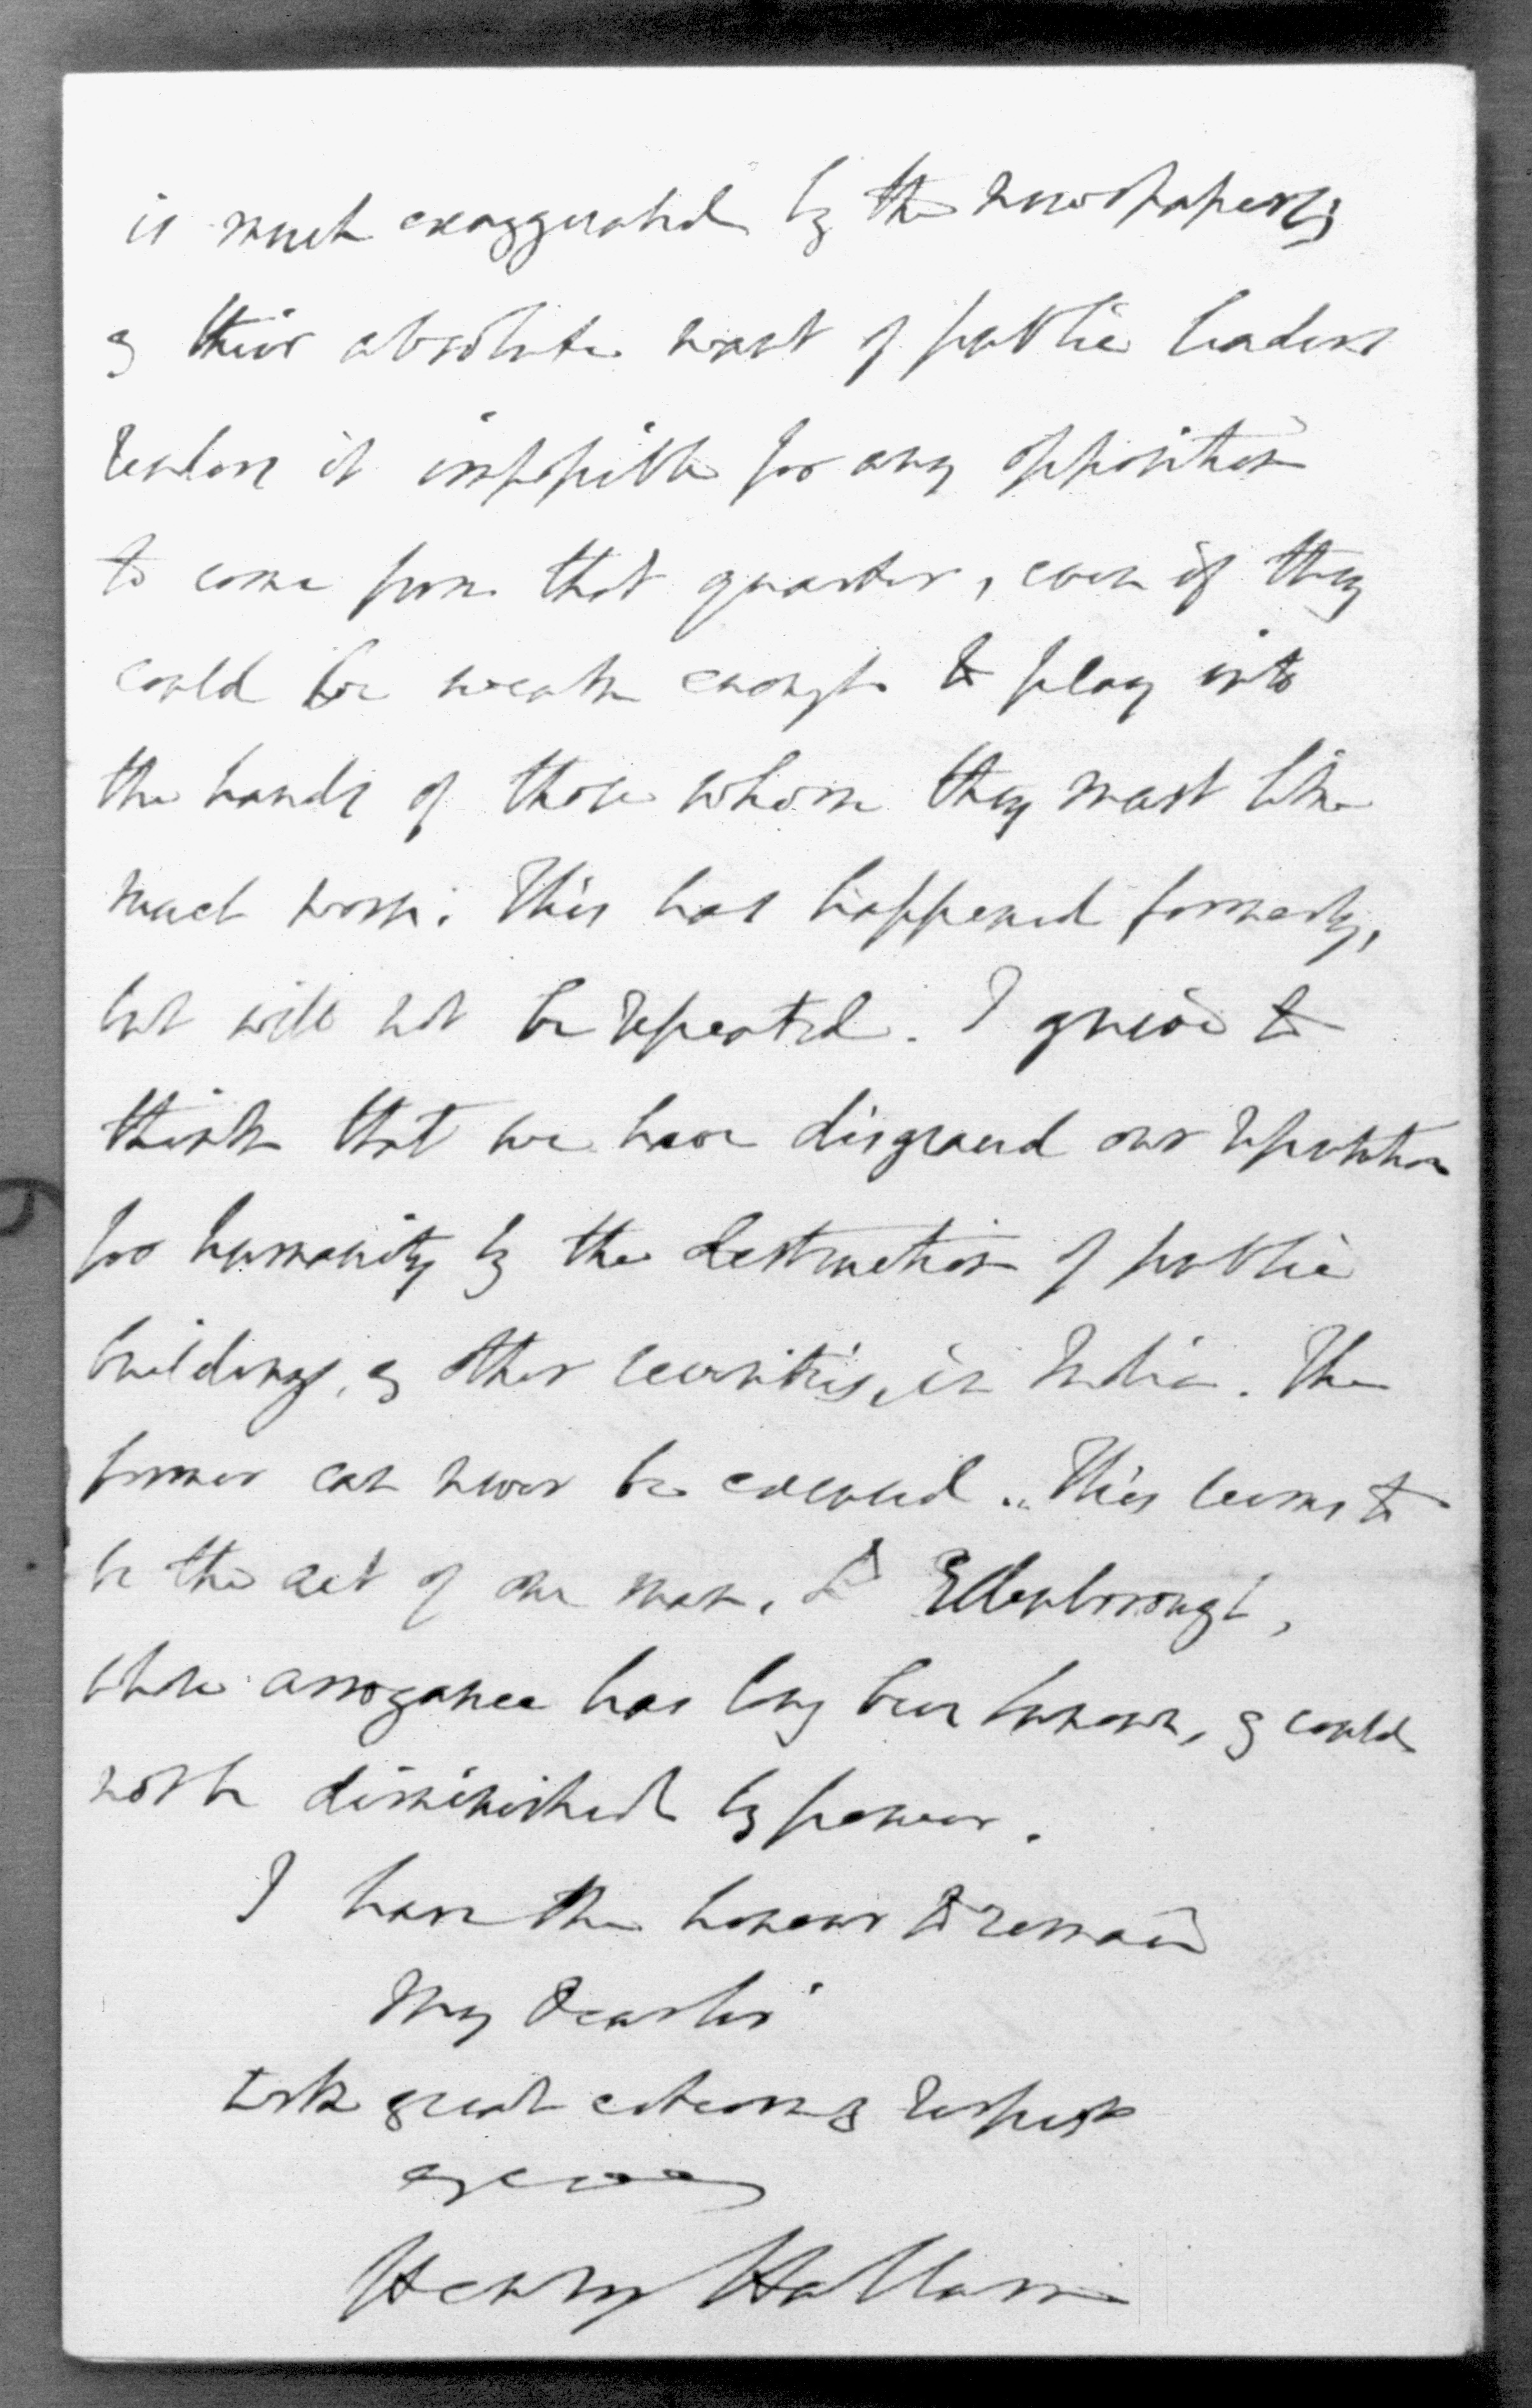 is much exaggerated by the newspapers;
& their absolute want of public leaders
renders it impossible for any opposition
to come from that quarter, even if they
could be weak enough to play into
the hands of those whom they must like
much worse. This has happened formerly,
but will not be repeated. I grieve to
think that we have disgraced our reputation
for humanity by the destruction of public
buildings, & other severities, in India. The
former can never be excused. This seems to
be the act of one man, Ld Ellenborough,
whose arrogance has long been known, & could
not be diminished by power.
I have the honour to remain
My Dear Sir
with great esteem & respect
Henry Hallam